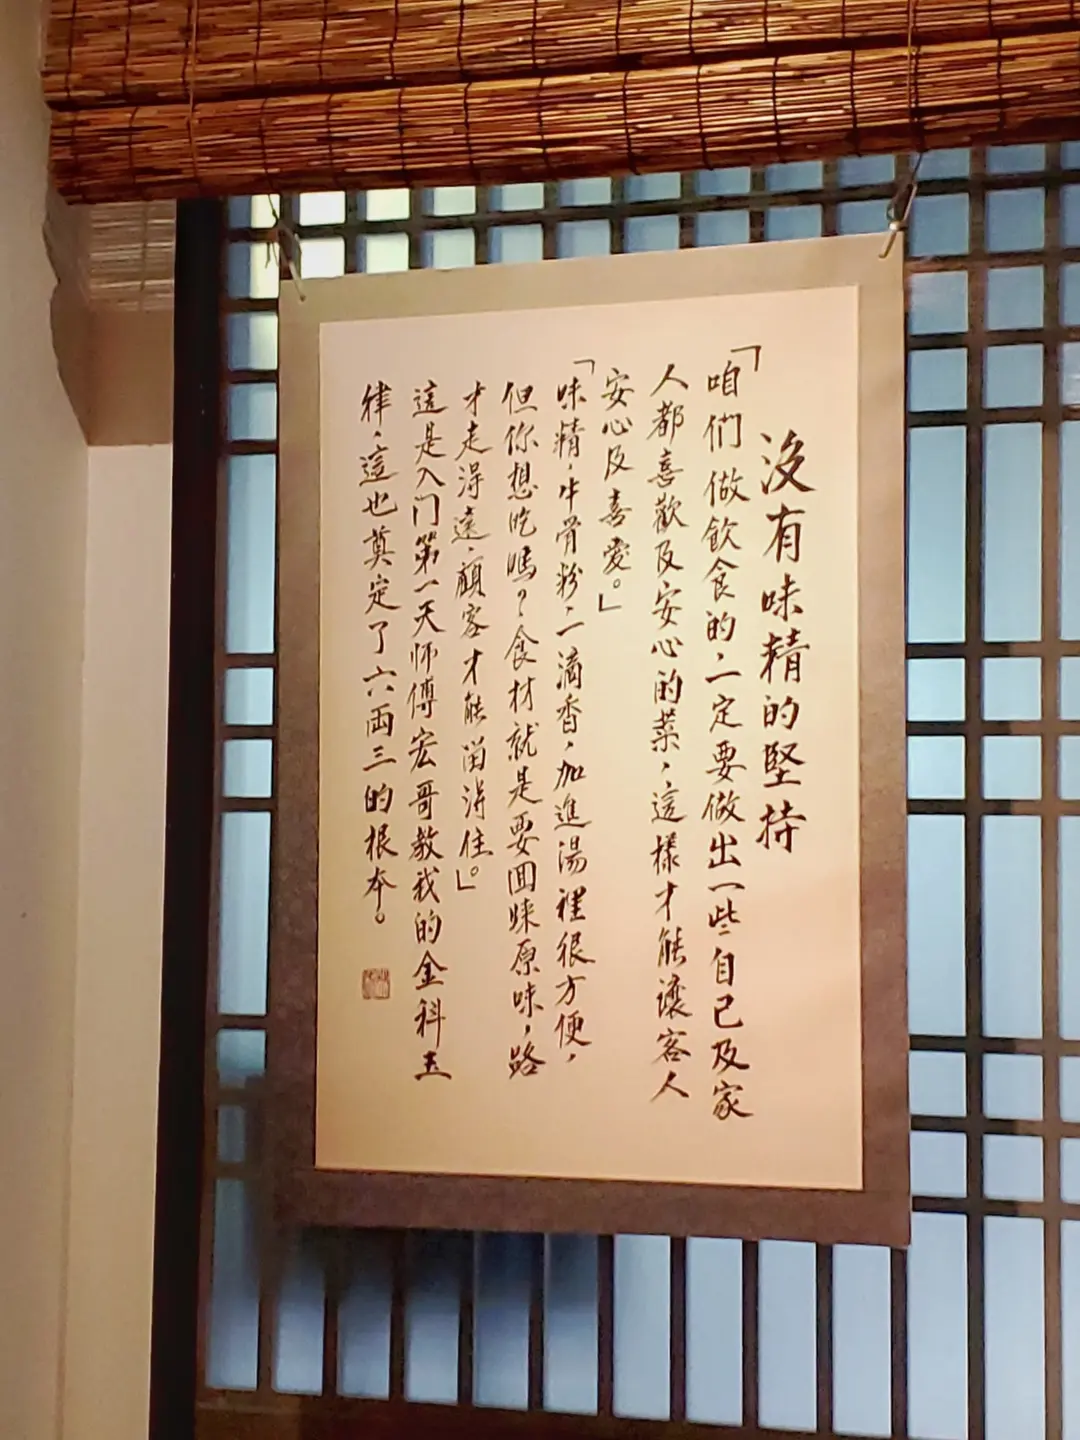 沒有味精的堅持
「咱們做飲食的,一定要做出一些自己及家
人都喜歡及安心的菜,這樣才能讓客人
安心及喜愛。」
「味精,牛骨粉,一滴香,加進湯裡很方便,
但你想吃嗎?食材就是要回味原味,路
才走得遠,顧客才能留得住。」
這是入门第一天师傅宏哥教我的金科玉
律,這也奠定了六両三的根本。